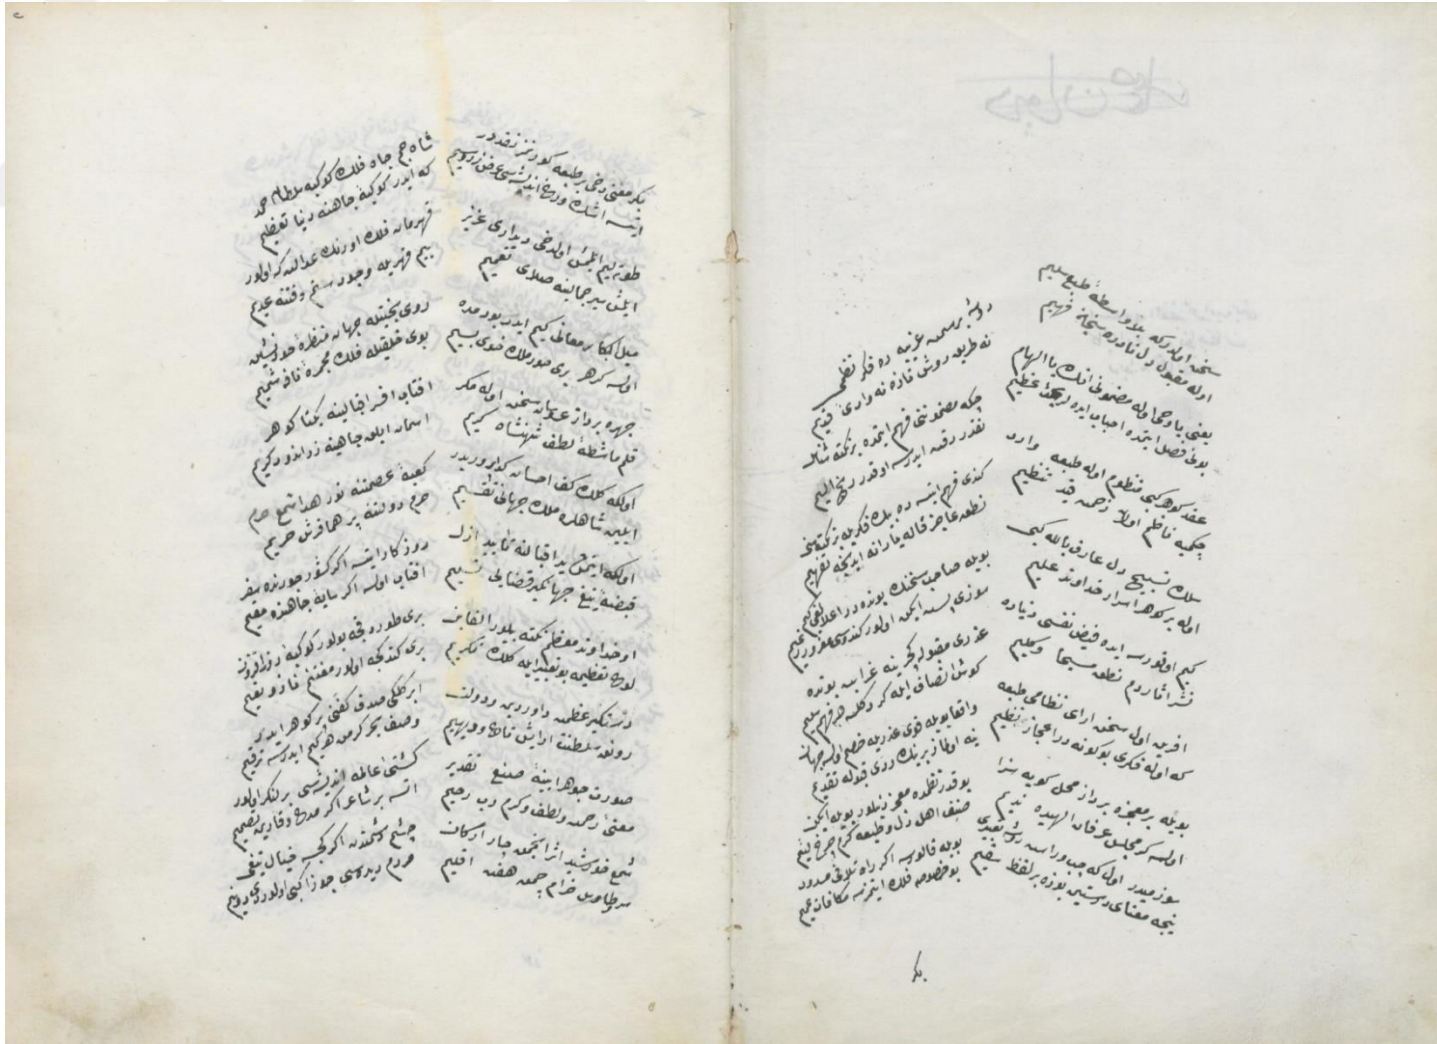 سخن اولدر که بلا واسطهٔ طبع سلیم
اوله مقبول دل نادره سنجان فهیم
یعنی یا وحی اوله مضمونی انک یا الهام
بونی فصل ایتمده احباب ایده لر بحث عظیم
عقد کوهر کبی منظوم اوله طبعه وارد
چکمیه ناظم اولان زحمت قید تنظیم
سلک تسبیح دل عارف بالله کبی
اوله بر کوهر اسرار خداوند علیم
کیم اوقورسه ایده فیض نفسی دنیاده
نشر اثار دم نطق مسیحا و کلیم
افرین اول سخن ارای نظامی طبعه
که اوله فکری بو کونه در اعجاز نظیم
بویله بر معجزه پرداز محل کویه سزا
اولسه کر مجلس عرفان الهیده ندیم
سوز میدر اول که چپ و راست
نیجه معنای درستی بوزه بر لفظ سقیم
نه طریق روش تازه نه وادی قدیم
چکه مضموننی فهم ایتمده بر نکته شناس
نقدر دقت ایدرسه اوقدر رنج الیم
کندی فهم ایتسه ده بیک فکریله بر نکته سنی
نطقی عاجز قاله یارانه ایدنجه تفهیم
بویله صاحب سخنک یوننده در اعلا لقمی
سوزی ایسه ایکن اولور کندوسی مغرور
عذری مقبوله کچر ینه غرابت بونده
کوش انصاف ایله کر دکلسه هر فهم سلیم
واقعا بویله قوی عذریله خصم اولسه جهان
ینه اولماز برینک ردی قبوله تقدیم
بو قدر نظمده معجز
صنف اهل دل و طبعه کرم
بویله قالورسه اگر راه تلافی مسدود
بو خصوصه فلک ایتمزسه مکافات عمیم
بکر
بکر معنی دخی بر طبعه کورنمز نقدر
ایتسه اشک
طوته لیم ایلمش اولدخی دیداری عزیز
ایلمش سیر جمالینه صلای تعمیم
میل ابکار معانی کیم ایدر بو دمده
اولسه کر هر بری حور ملک خوی بسیم
چهره پرداز عروسان سخن اوله مکر
قلم ماشطهٔ لطف شهنشاه کریم
اولکه کلک کف احسان کداپروریدر
ایلین شاهلره ملک جهانی تقسیم
اولکه ایتمش ید اقبالنه تأیید ازل
قبضهٔ تیغ جهانکیر قضایی تسلیم
او خداوند معظم که یلور القابن
لوح تعظیمه بو تعبیر ایله کلک تکریم
در تنکیر عظمت داور دین و دولت
رونق سلطنت آرایش تاج و دیهیم
صورت جوهر آیینهٔ صنع تقدیر
معنی رحمت و لطف و کرم رب رحیم
شمع خورشید اثر انجمن چار ارکان
سرو طاوس خرام چمن هفت اقلیم
شاه جم جاه فلک کوکبه سلطان محمد
که ایدر کوکبهٔ جاهنه دنیا تعظیم
قهرمان فلک اورنک عدالت که اولور
بیم قهریله وجود ستم و فتنه عدیم
روی بختیله جهان منظرهٔ حور نشین
بوی خلقیله فلک مجمرهٔ نافه شمیم
افتاب افسر اقبالنه یکتا کوهر
اسمان ایلق جاهینه زر اندود کریم
کعبهٔ عصمتنه نور هدا شمع حرم
حرم دولتنه پر هما فرش حریم
روزکار ایتسه اکر کشور جودنده سفر
افتاب اولسه اکر سایهٔ جاهنده مقیم
بری طوردقجه بولور کوکبهٔ روز افزون
بری کتدکجه اولور مغتنم ناز و نعیم
ابر کلکی صدف کفنی پر کوهر ایدر
وصف بحر کرمن هر کیم ایدرسه ترقیم
کشتئ عالمه اندیشه سی بر لنکر اولور
اتسه بر شاعر اکر مدح وقارین تصمیم
چشم دشمنده اکر کچسه خیال تیغی
مردم دیده سی جوزا کبی اولور دی دو نیم